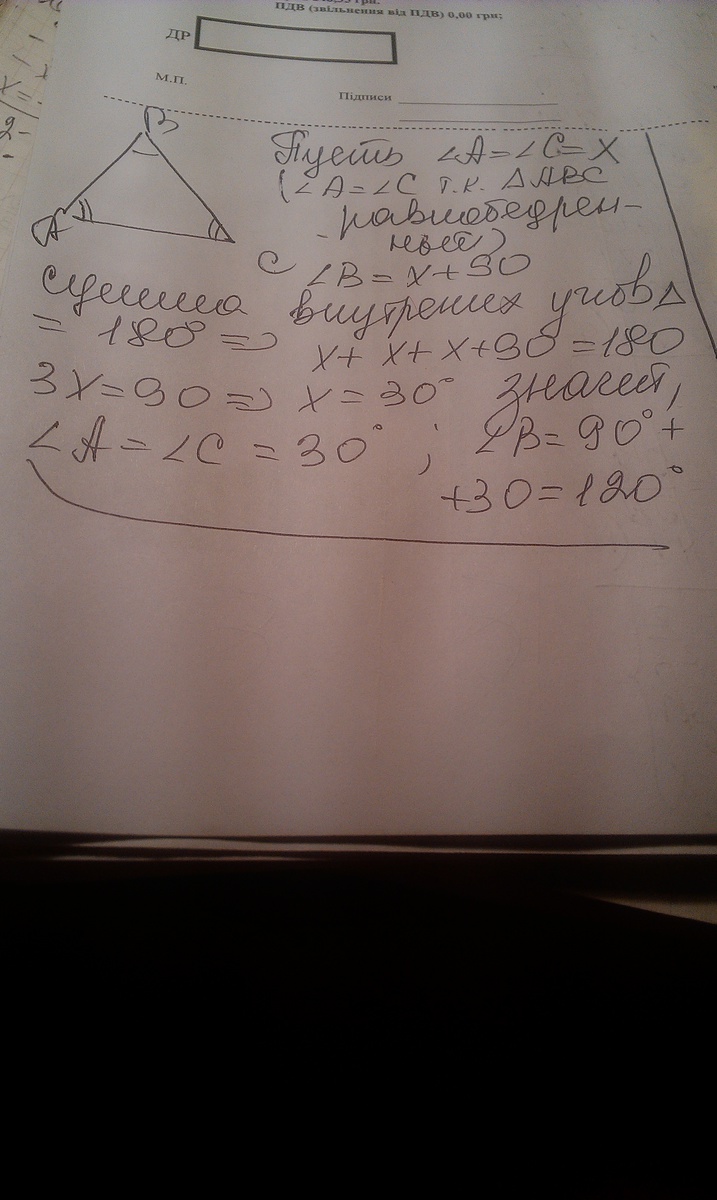 ПДВ (звільнення від ПДВ) 0,00 грн;
ДР
М.П.
Підписи
B
A
C
Пусть ∠A=∠C=x
(∠A=∠C т.к. △ABC
равнобедрен-
-ный)
∠B=x+90
сумма внутрених углов △
= 180° =>
x+x+x+90=180
3x=90 => x=30° значит,
∠A=∠C=30° ; ∠B=90°+
+30=120°